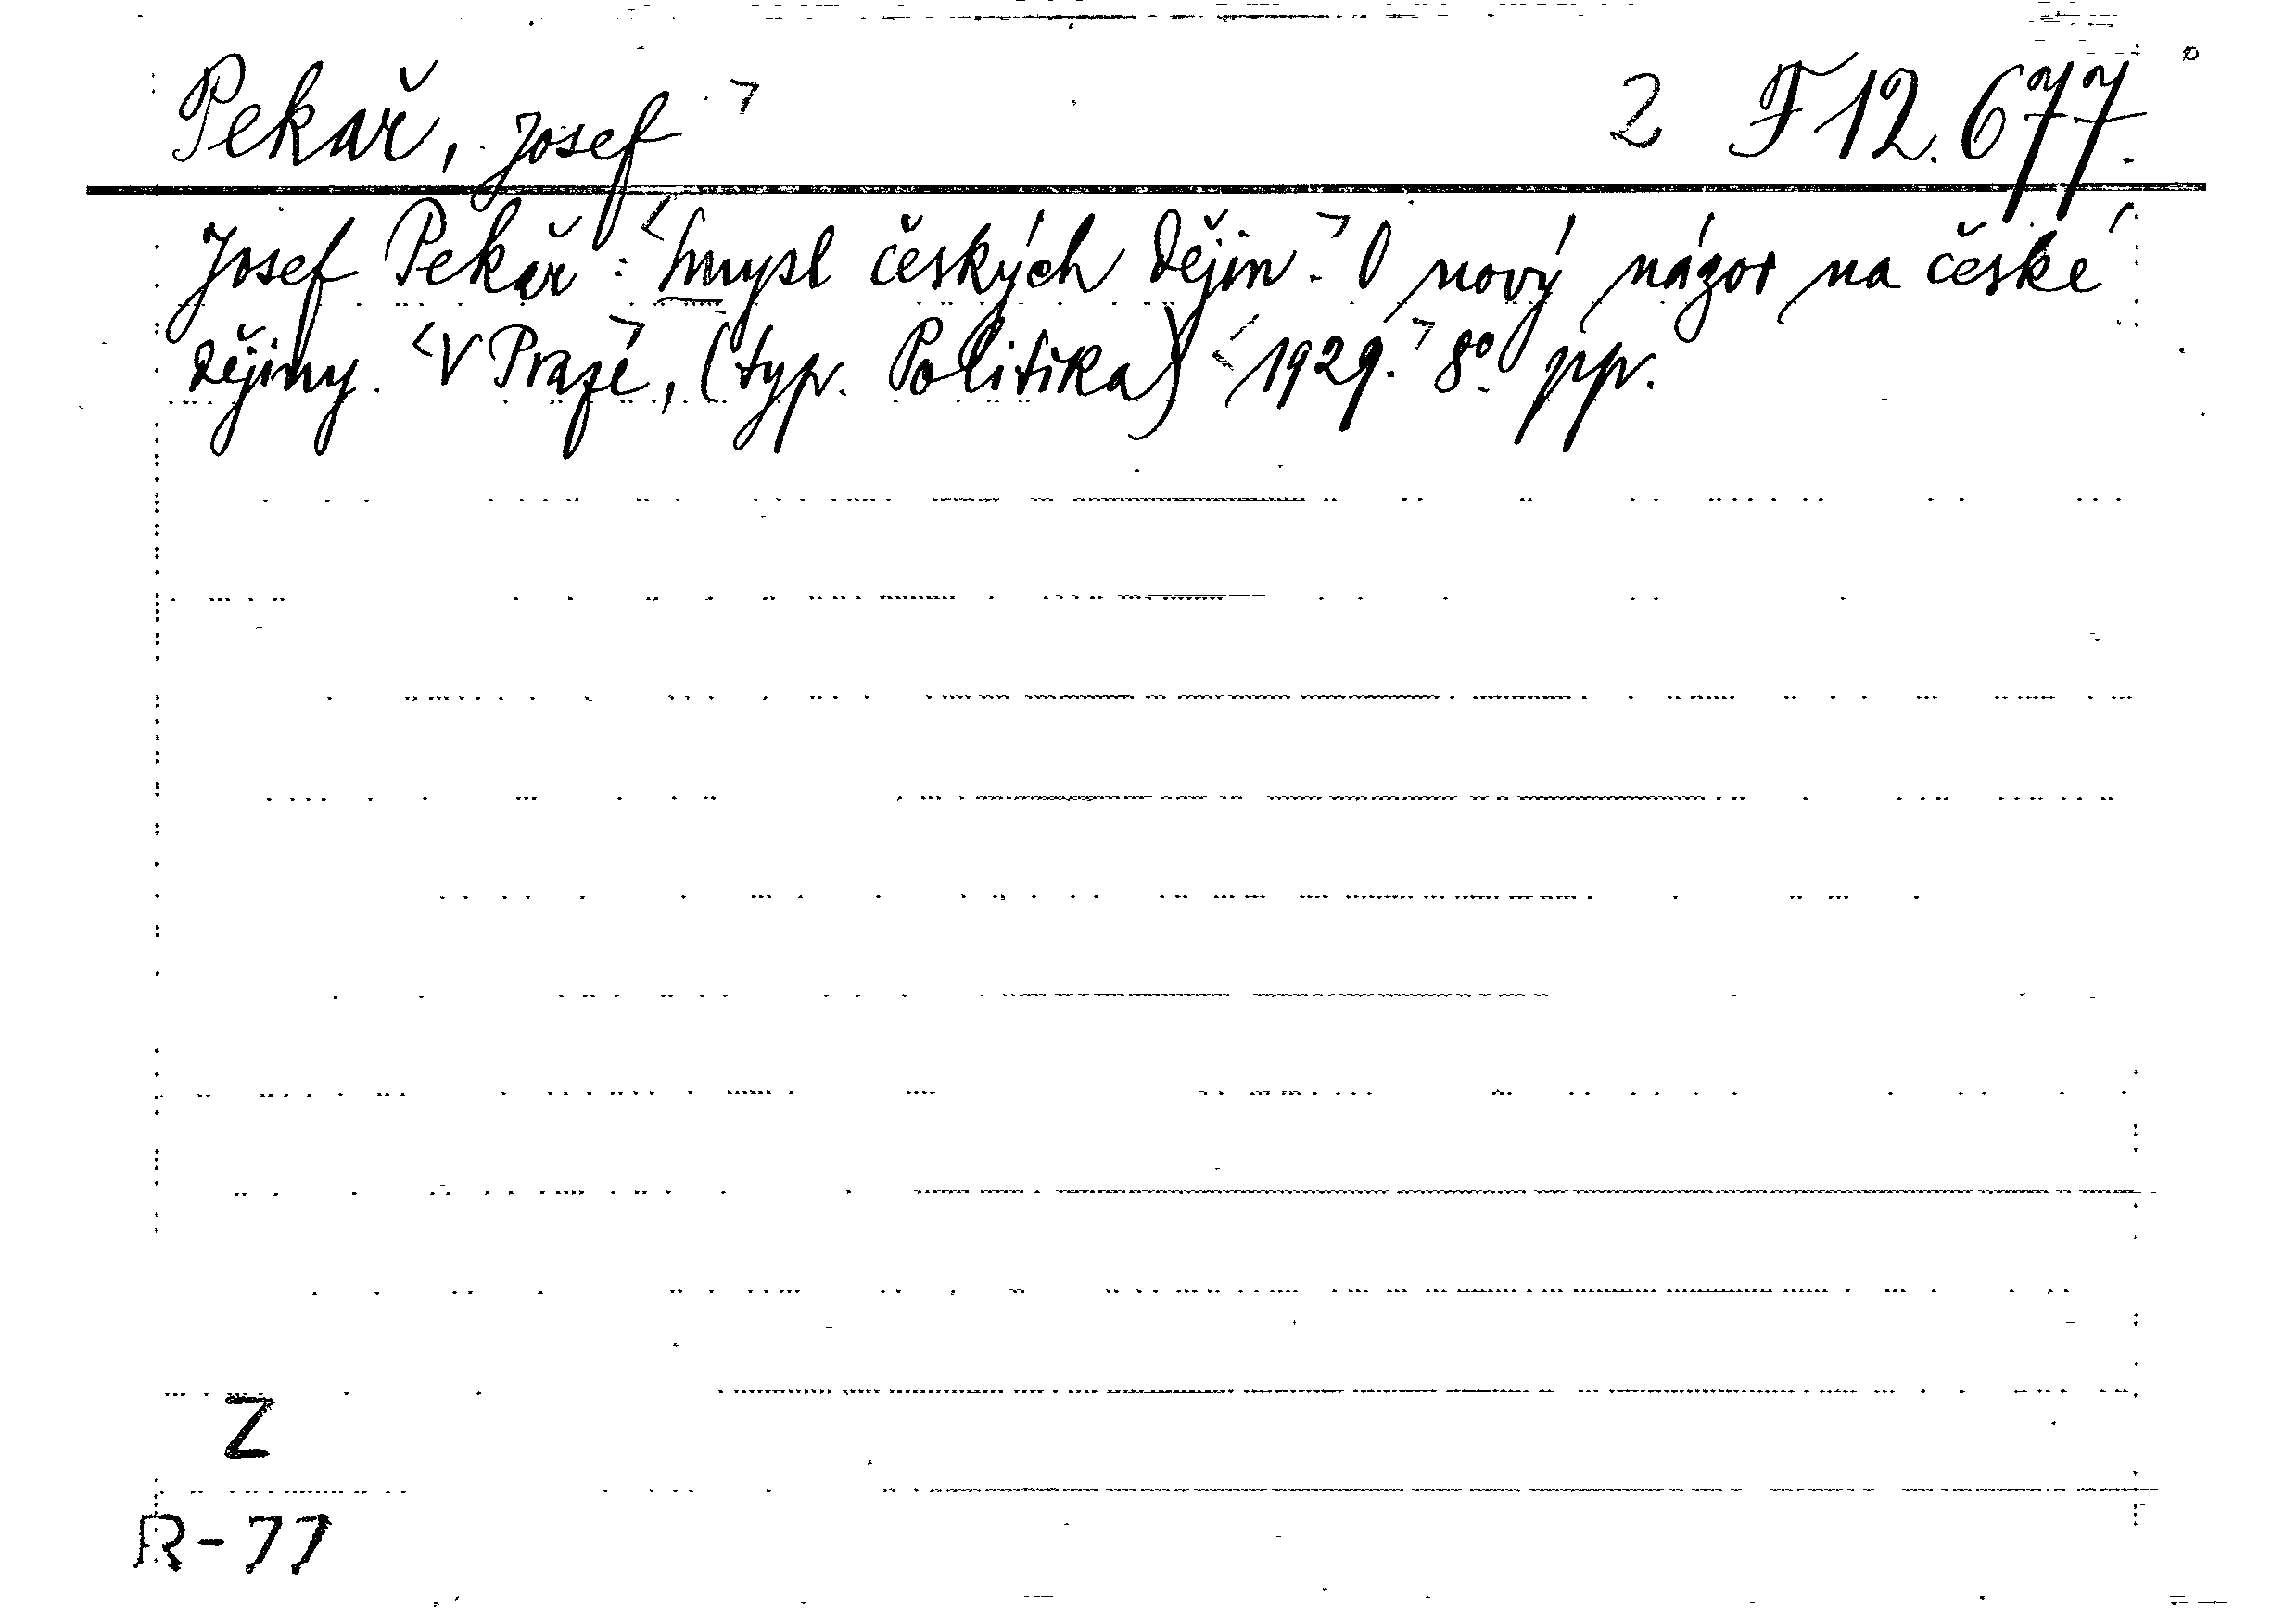 Pekař, Josef ⌝ 2 F 12.677.
Josef Pekař: <Smysl českých dějin.⌝ O nový názor na české
dějiny. <V Praze⌝, (typ. Politika) <1929.⌝ 8° pp.
Z
R-77